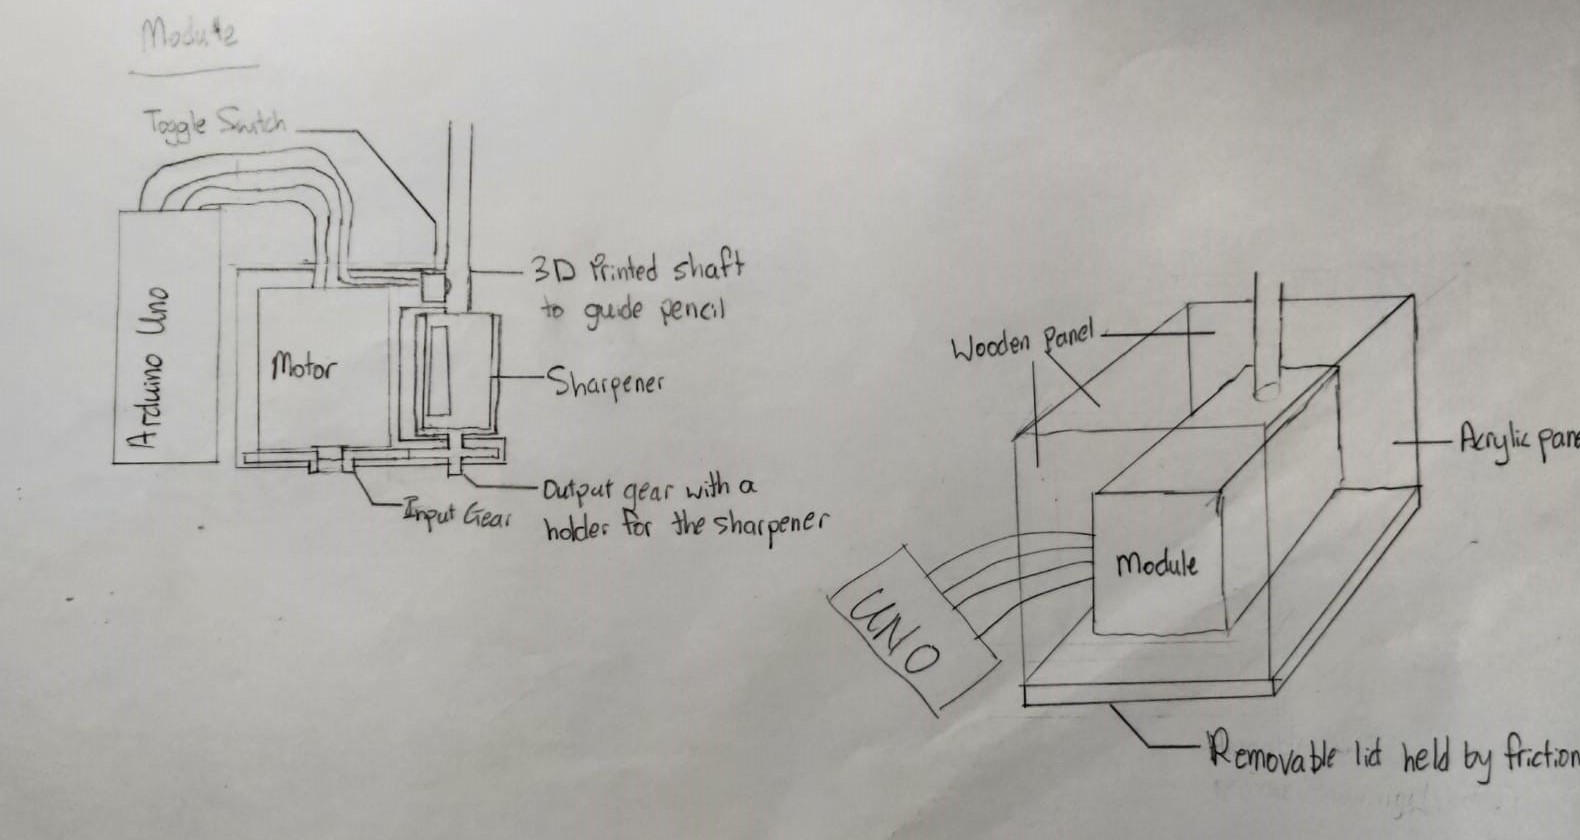 Module
Toggle Switch
Arduino Uno
Motor
3D Printed shaft
to guide pencil
Sharpener
Input Gear
Output gear with a
holder for the sharpener
Wooden panel
Acrylic pane
Module
UNO
Removable lid held by friction